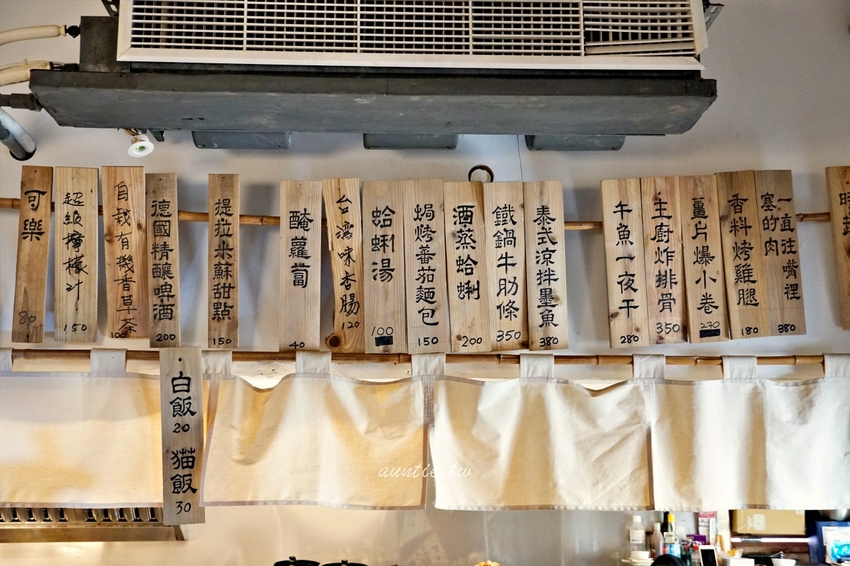 可樂
80
超級檸檬汁
150
自栽有機香草茶
100
德國精釀啤酒
200
提拉米蘇甜點
150
醃蘿蔔
40
台灣味香腸
120
蛤蜊湯
100
焗烤蕃茄麵包
150
酒蒸蛤蜊
200
鐵鍋牛肋條
350
泰式涼拌墨魚
380
午魚一夜干
280
主廚炸排骨
350
薑片爆小卷
270
香料烤雞腿
180
一直往嘴裡
塞的肉
380
時蔬
白飯
20
貓飯
30
auntie.tw